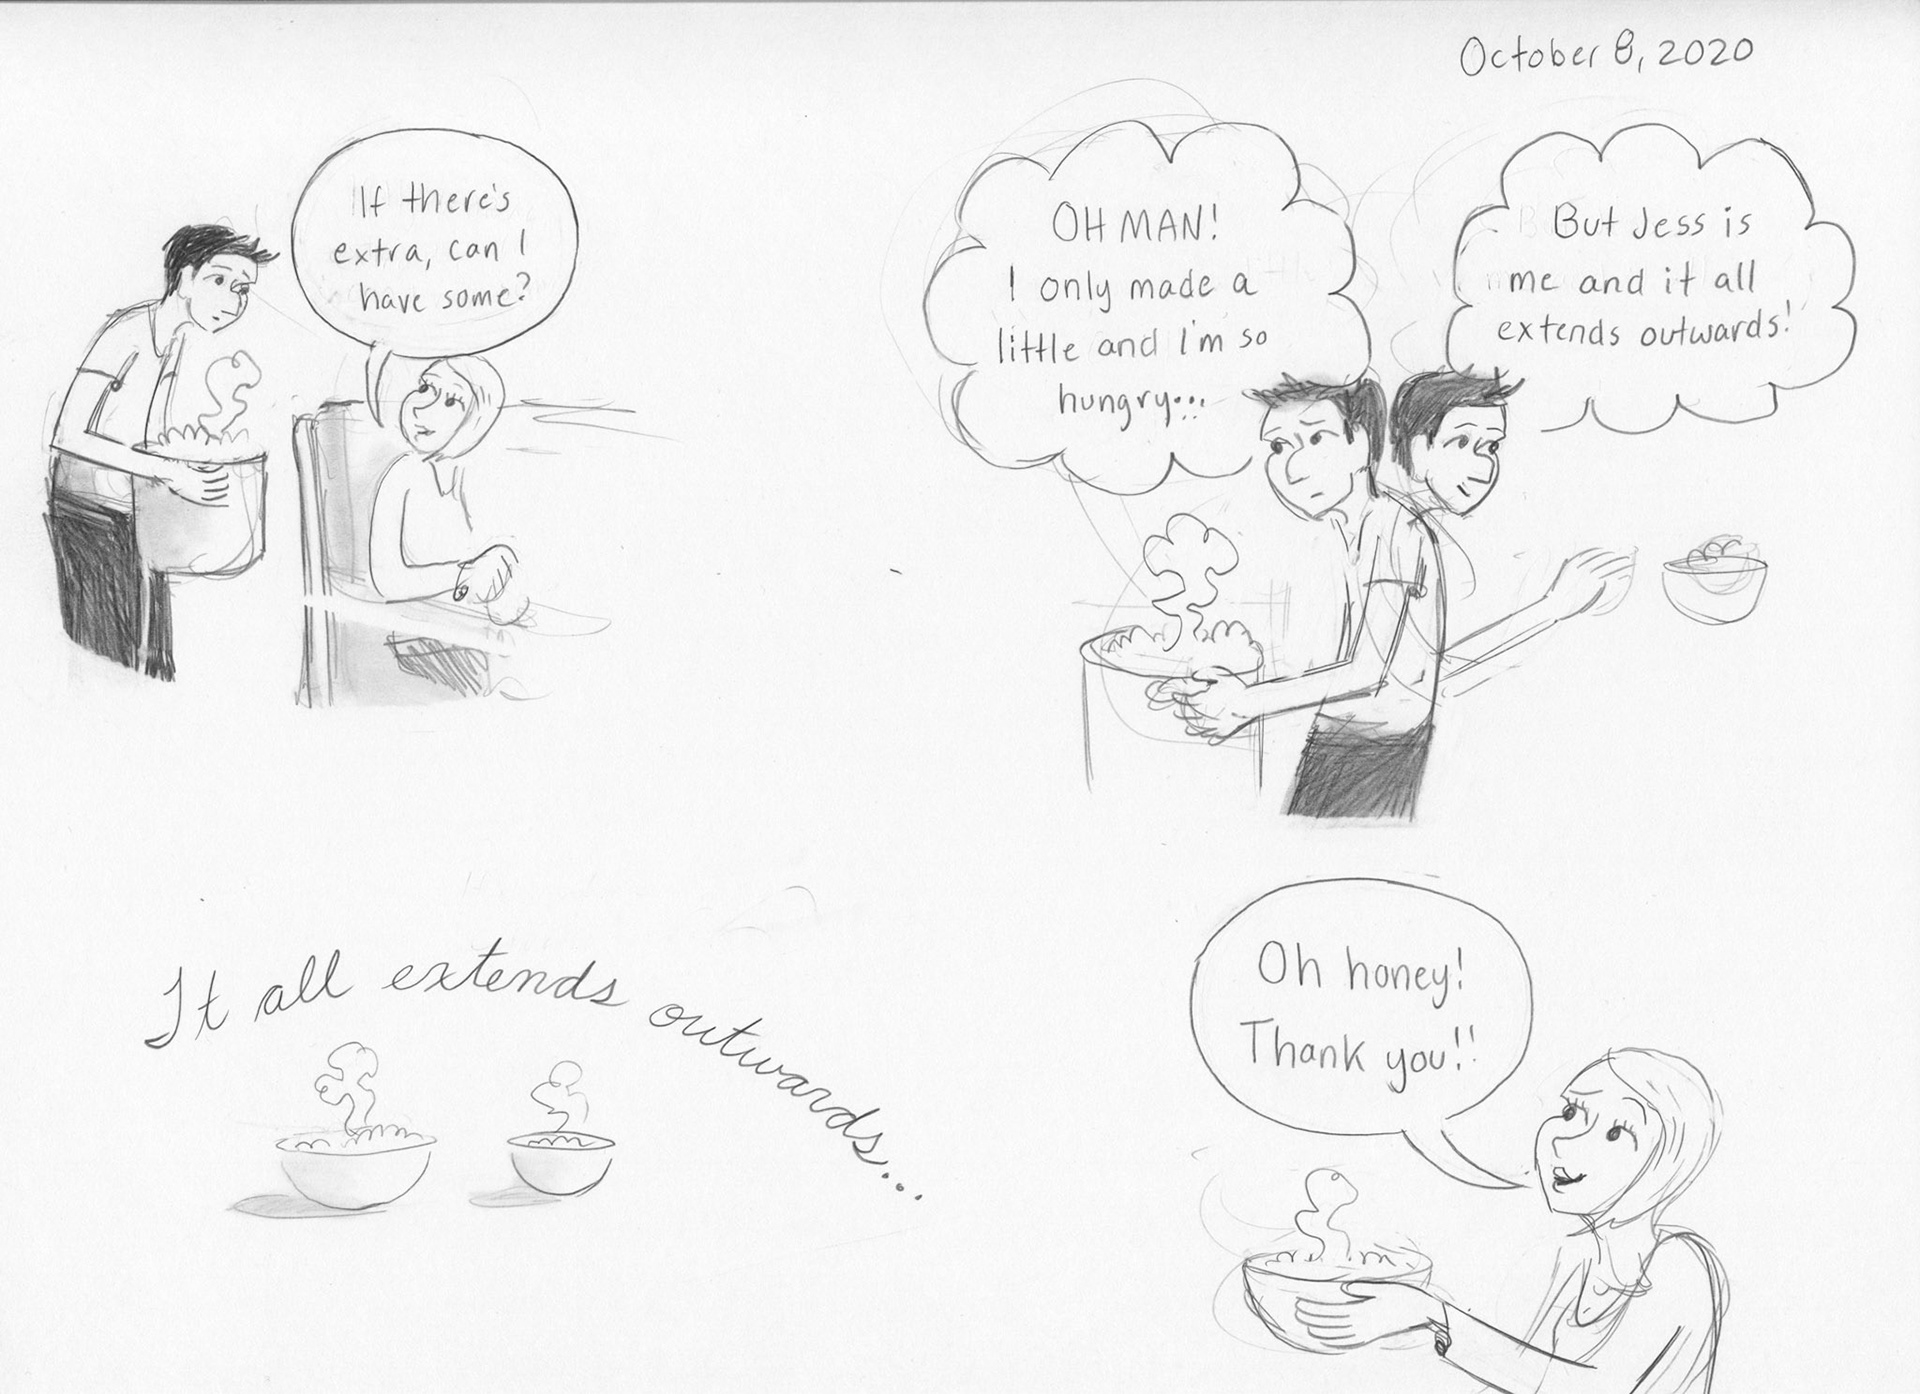 October 8, 2020
If there's
extra, can I
have some?
OH MAN!
I only made a
little and I'm so
hungry...
But Jess is
me and it all
extends outwards!
It all extends outwards...
Oh honey!
Thank you!!